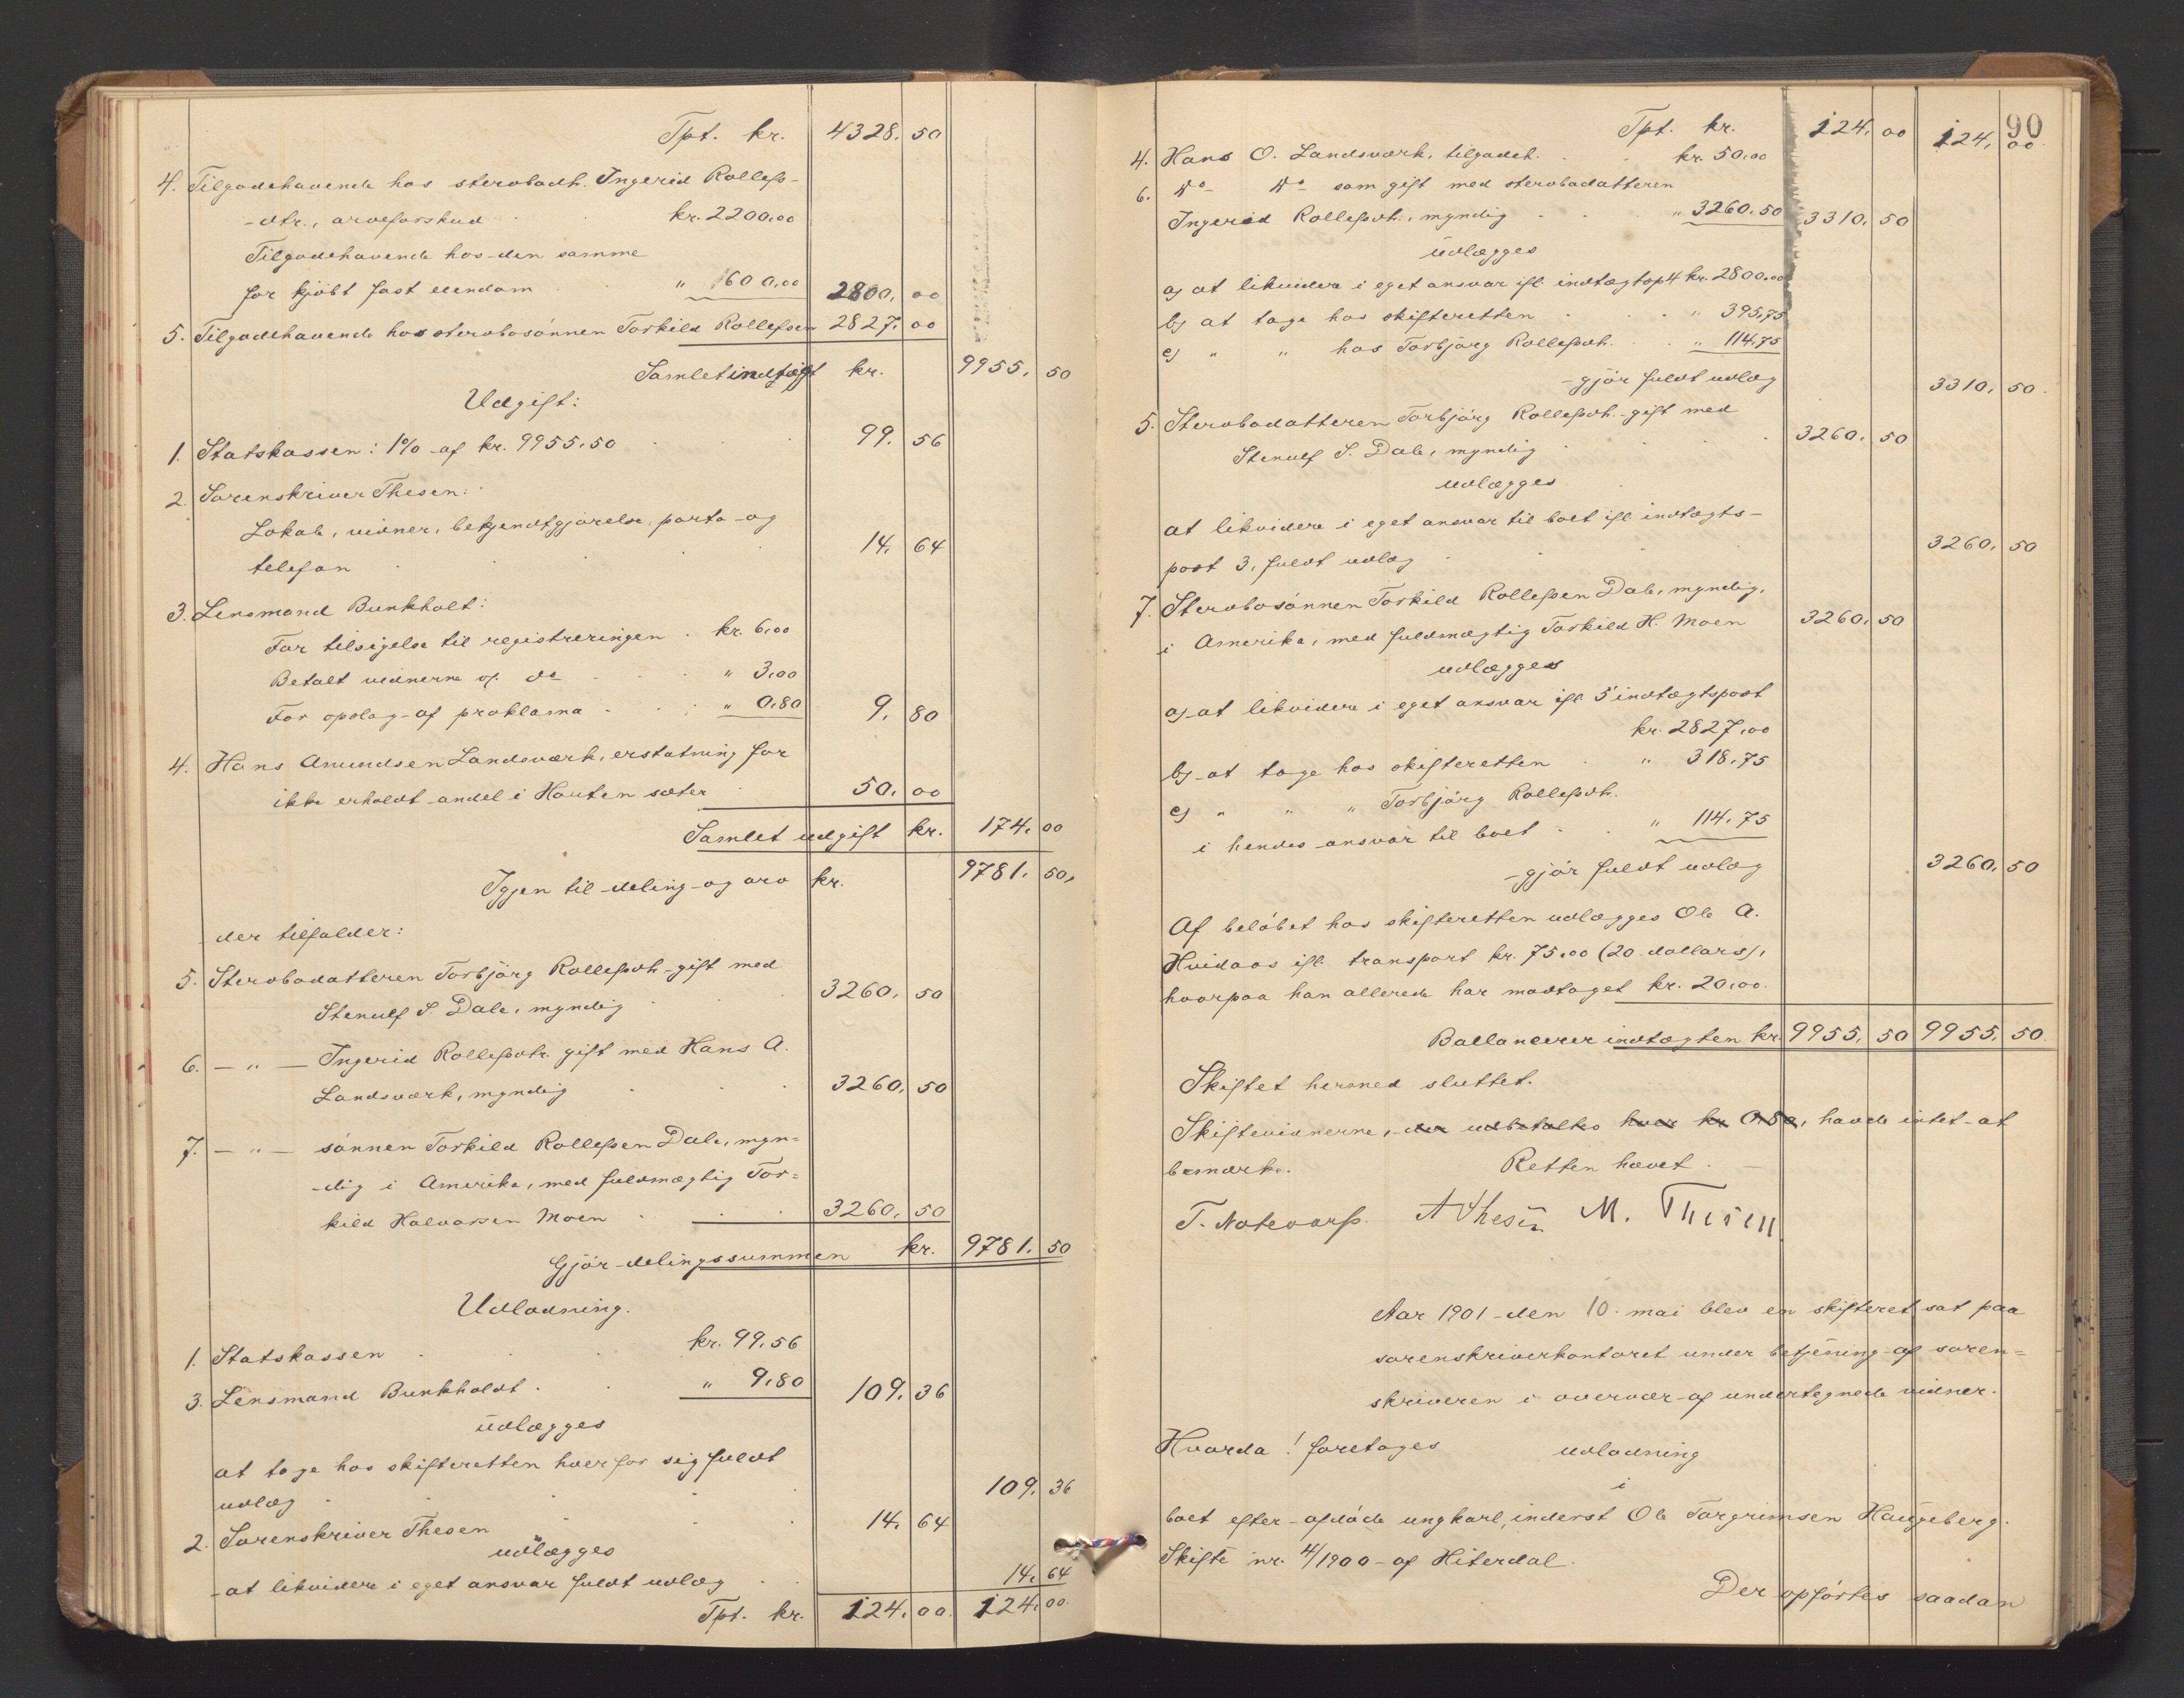 Tpt. kr. 4328. 50
4. Tilgodehavende hos sterobodh. Ingerid Rollefs-
-dtr., arveforskud . . kr. 2200.00
Tilgodehavende hos den samme
for kjöbt fast eiendom . . " 600.00 2800. 00
5. Tilgodehavende hos sterobosönnen Torkild Rollefsen 2827. 00
Samlet indtægt kr. 9955. 50
Udgift:
1. Statskassen: 1% af kr. 9955.50 . . . 99. 56
2. Sorenskriver Thesen:
Lokale, vidner, bekjendtgjörelse, porto og
telefon . . . . 14. 64
3. Lensmand Bunkholt:
For tilsigelse til registreringen . kr. 6.00
Betalt vidnerne v. do . . . " 3.00
For opslag af proklama . . . " 0.80 9. 80
4. Hans Amundsen Landsværk, erstatning for
ikke erholdt andel i Houten sæter . 50. 00
Samlet udgift kr. 174. 00
Igjen til deling og arv kr. 9781. 50.
der tilfalder:
5. Sterobodatteren Torbjörg Rollefsdh. gift med
Stenulf S. Dale, myndig . . . 3260. 50
6. — " — Ingerid Rollefsdtr. gift med Hans A.
Landsværk, myndig . . 3260. 50
7. — " — sönnen Torkild Rollefsen Dale, myn=
-dig i Amerika, med fuldmægtig Tor=
kild Halvorsen Moen . . . 3260. 50
Gjör delingssummen kr. 9781. 50
Udlodning.
1. Statskassen . . . kr. 99.56
3. Lensmand Bunkholdt . . " 9.80 109. 36
udlægges
at tage hos skifteretten hver for sig fuldt
udlæg . . . . 109. 36
2. Sorenskriver Thesen . . 14. 64
udlægges
at likvidere i eget ansvar fuldt udlæg . . 14. 64
Tpt. kr. 124. 00. 124. 00.
90
Tpt. kr. 124. 00 124. 00.
4. Hans O. Landsværk, tilgodeh. . . kr. 50.00
6. Do Do som gift med sterobodatteren
Ingerid Rollefsdh., myndig . . . " 3260.50 3310. 50
udlægges
a) at likvidere i eget ansvar ifl. indtægtsp 4 kr. 2800.00
b) at tage hos skifteretten . . . " 395.75
c) " " hos Torbjörg Rollefsdh. . . " 114.75
-gjör fuldt udlæg 3310. 50.
5. Sterobodatteren Torbjörg Rollefsdh. gift med
Stenulf S. Dale, myndig . . . . 3260. 50
udlægges
at likvidere i eget ansvar til boet ifl. indtægts-
post 3, fuldt udlæg . . . . 3260. 50
7. Sterobosönnen Torkild Rollefsen Dale, myndig,
i Amerika, med fuldmægtig Torkild H. Moen 3260. 50
udlægges
a) at likvidere i eget ansvar ifl. 5 indtægtspost
kr. 2827.00
b) at tage hos skifteretten . " 318.75
c) " " " Torbjörg Rollefsdh.
i hendes ansvar til boet . . " 114.75
-gjör fuldt udlæg 3260. 50
Af belöbet hos skifteretten udlægges Ole A.
Hvidaas ifl. transport kr. 75.00 (20 dollars),
hvorpaa han allerede har modtaget kr. 20.00.
Ballancerer indtægten kr. 9955. 50 9955. 50.
Skiftet hermed sluttet.
Skiftevidnerne, der udbetaltes hver kr. 0.50, havde intet at
bemærke. Retten hævet. —
T. Notevarp. A Thesen M. Thesen
Aar 1901 den 10. mai blev en skifteret sat paa
sorenskriverkontoret under betjening af soren=
skriveren i overvær af undertegnede vidner.
Hvorda! foretoges udlodning
i
boet efter afdöde ungkarl, inderst Ole Torgrimsen Haugeberg.
Skifte nr. 4/1900 af Hiterdal.
Der opförtes saadan